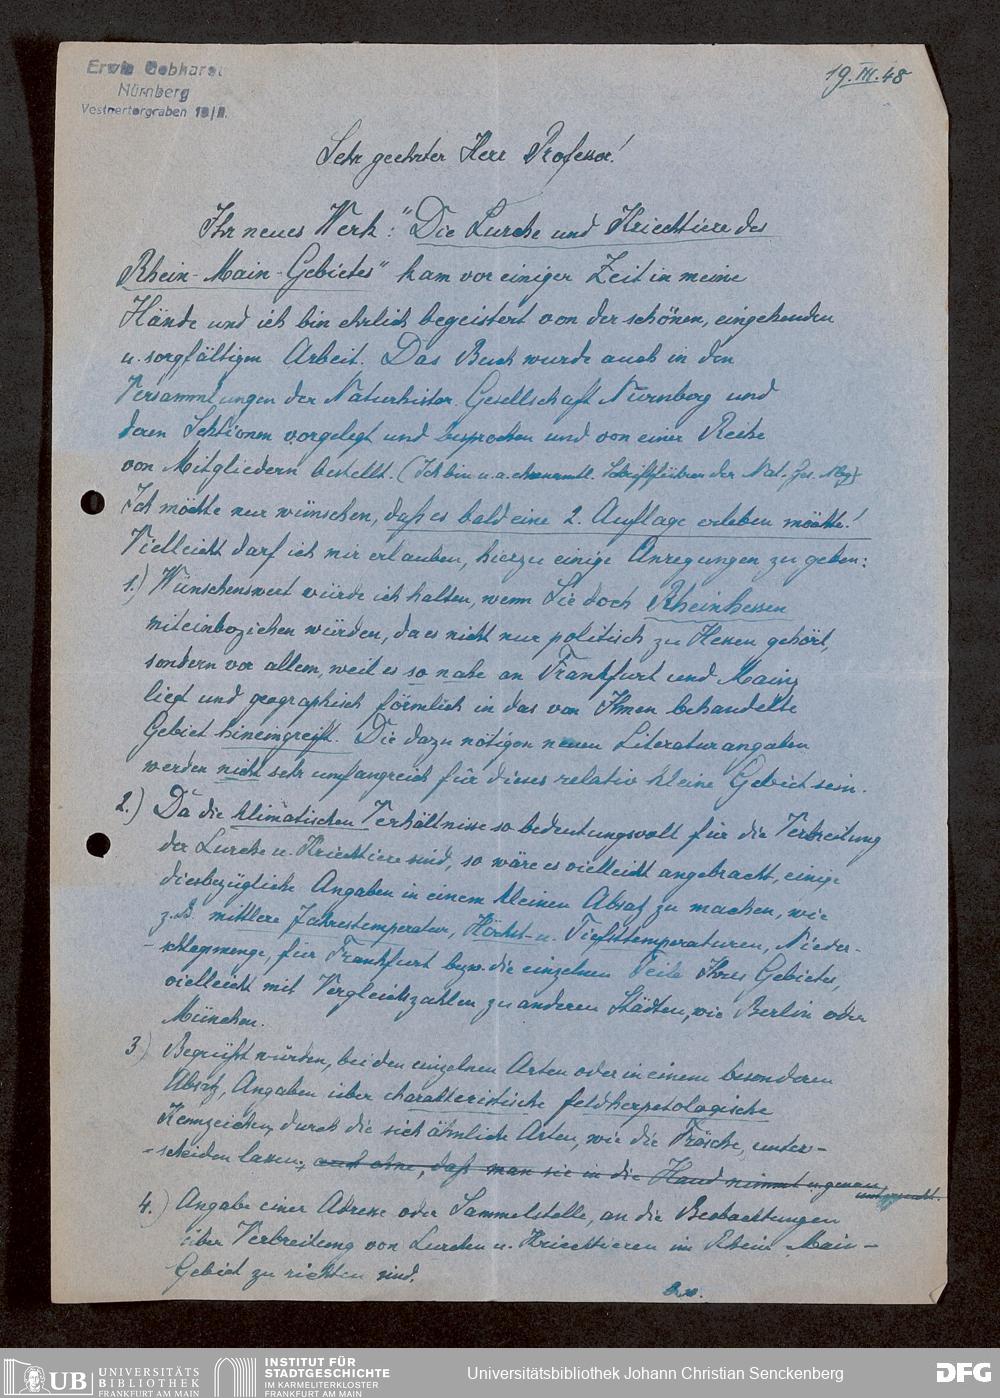 Erwin Gebhardt
Nürnberg
Vestnertorgraben 19/II.
19.III.48
Sehr geehrter Herr Professor!
Ihr neues Werk: "Die Lurche und Kriechtiere des
Rhein-Main-Gebietes" kam vor einiger Zeit in meine
Hände und ich bin ehrlich begeistert von der schönen, eingehenden
u. sorgfältigen Arbeit. Das Buch wurde auch in den
Versammlungen der Naturhistor. Gesellschaft Nürnberg und
deren Sektionen vorgelegt und besprochen und von einer Reihe
von Mitgliedern bestellt. (Ich bin u.a. ehrenamtl. Schriftführer der Nat. Ges. Nbg)
Ich möchte nur wünschen, daß es bald eine 2. Auflage erleben möchte!
Vielleicht darf ich mir erlauben, hierzu einige Anregungen zu geben:
1.) Wünschenswert würde ich halten, wenn Sie doch Rheinhessen
miteinbeziehen würden, da es nicht nur politisch zu Hessen gehört,
sondern vor allem, weil es so nahe an Frankfurt und Mainz
liegt und geographisch förmlich in das von Ihnen behandelte
Gebiet hineingreift. Die dazu nötigen neuen Literaturangaben
werden nicht sehr umfangreich für dieses relativ kleine Gebiet sein.
2.) Da die klimatischen Verhältnisse so bedeutungsvoll für die Verbreitung
der Lurche u. Kriechtiere sind, so wäre es vielleicht angebracht, einige
diesbezügliche Angaben in einem kleinen Absatz zu machen, wie
z.B. mittlere Jahrestemperatur, Höchst- u. Tiefsttemperaturen, Nieder-
-schlagsmenge, für Frankfurt bezw. die einzelnen Teile Ihres Gebietes,
vielleicht mit Vergleichszahlen zu anderen Städten, wie Berlin oder
München.
3.) Begrüßt würden, bei den einzelnen Arten oder in einem besonderen
Absatz, Angaben über charakteristische feldherpetologische
Kennzeichen, durch die sich ähnliche Arten, wie die Frösche, unter-
-scheiden lassen, auch ohne, daß man sie in die Hand nimmt u. genau
untersucht.
4.) Angabe einer Adresse oder Sammelstelle, an die Beobachtungen
über Verbreitung von Lurchen u. Kriechtieren im Rhein-Main-
Gebiet zu richten sind.
UB UNIVERSITÄTS
BIBLIOTHEK
FRANKFURT AM MAIN
INSTITUT FÜR
STADTGESCHICHTE
IM KARMELITERKLOSTER
FRANKFURT AM MAIN
Universitätsbibliothek Johann Christian Senckenberg
DFG